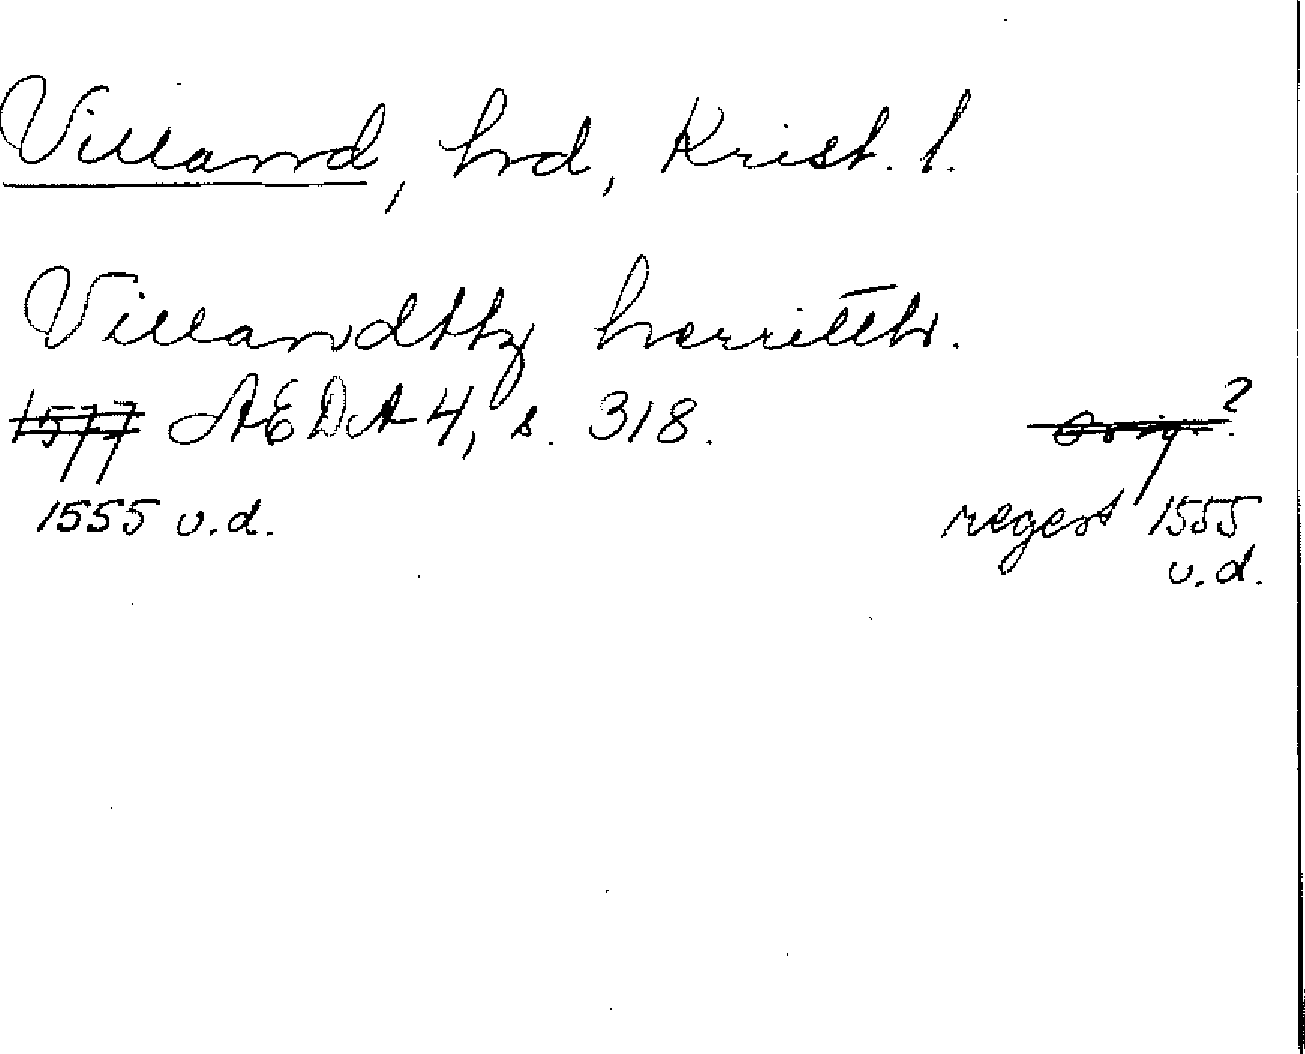 Villand, hrd, Krist. l.
Villandttz herrittr.
1577 AEDA 4, s. 318. Orig.?
1555 u.d. regest 1555
u.d.